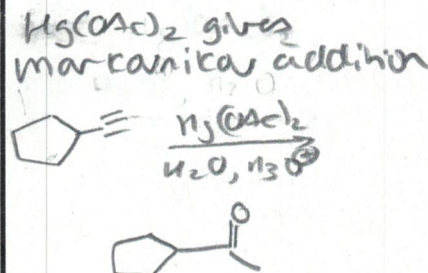 Hg(OAc)2 gives
markovnikov addition
Hg(OAc)2
H2O, H3O⊕
O